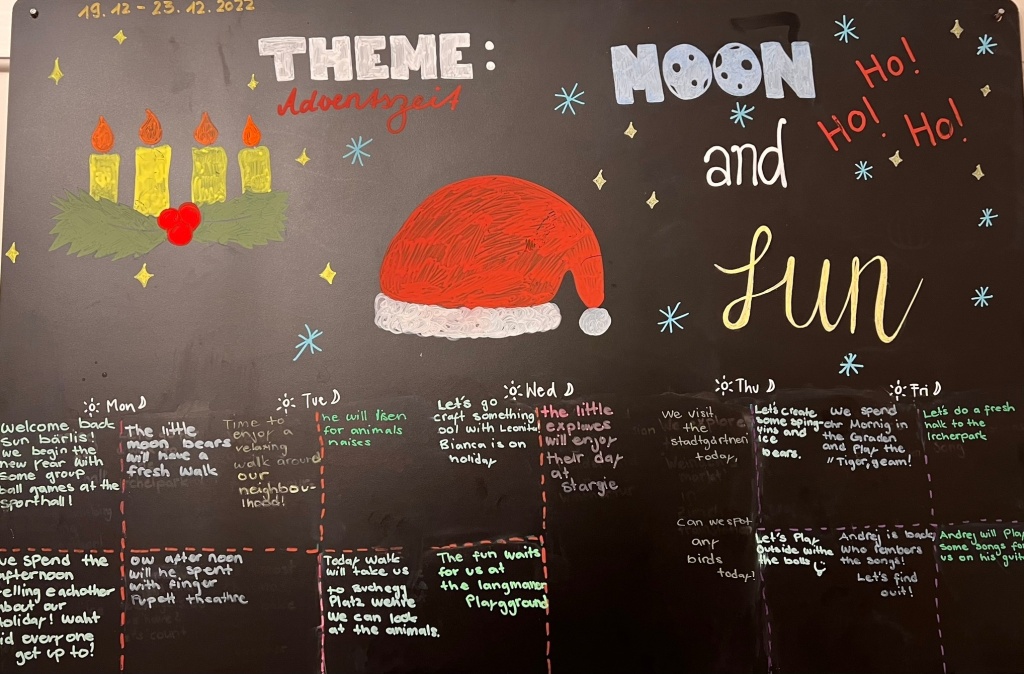 19.12 - 23.12.2022
THEME:
Adventszeit
MOON
and
Sun
Ho!
Ho! Ho!
Mon
Tue
Wed
Thu
Fri
Welcome back
Sun bärlis!
we begin the
new year with
some group
ball games at the
Sporthall!
The little
moon bears
will have a
fresh walk
Time to
enjoy a
relaxing
walk around
our
neighbou-
lhood!
he will lisen
for animals
naises
Let's go
craft something
ool with Leonita
Bianca is on
holiday
the little
explaves
will enjoy
their day
at
Stargie
We visit
the
stadtgärtnen
today,
Can we spot
any
birds
today?
Let's create
some sping-
ins and
ice
bears.
We spend
ohr Mornig in
the Garaden
and Play the
"Tiger, geam!
Let's do a fresh
halk to the
Ircherpark
ve spend the
afternoon
elling eachother
about our
holiday! Waht
id everyone
get up to!
ow after noon
will he spent
with finger
Pupett theathre
Today walk
will take us
to Buchegg
Platz wehre
We can look
at the animals.
The fun waits
for us at
the langmaner
Playgground
Let's Play
outside withe
the balls
Andrej is back
who rembers
the songs!
Let's find
out!
Andrej will Play
some songs fo
us on his guit